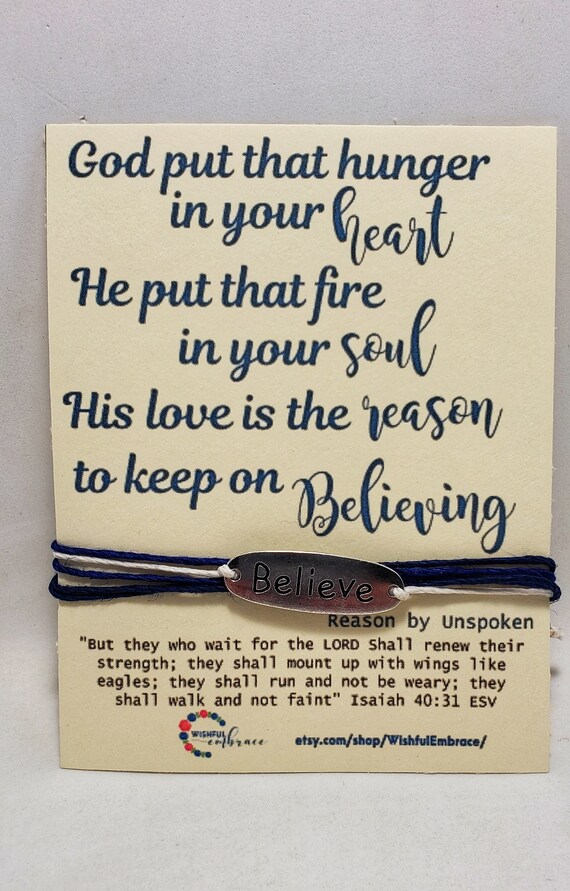 God put that hunger
in your heart
He put that fire
in your soul
His love is the reason
to keep on Believing
Believe
Reason by Unspoken
"But they who wait for the LORD Shall renew their
strength; they shall mount up with wings like
eagles; they shall run and not be weary; they
shall walk and not faint" Isaiah 40:31 ESV
WISHFUL
embrace
etsy.com/shop/WishfulEmbrace/